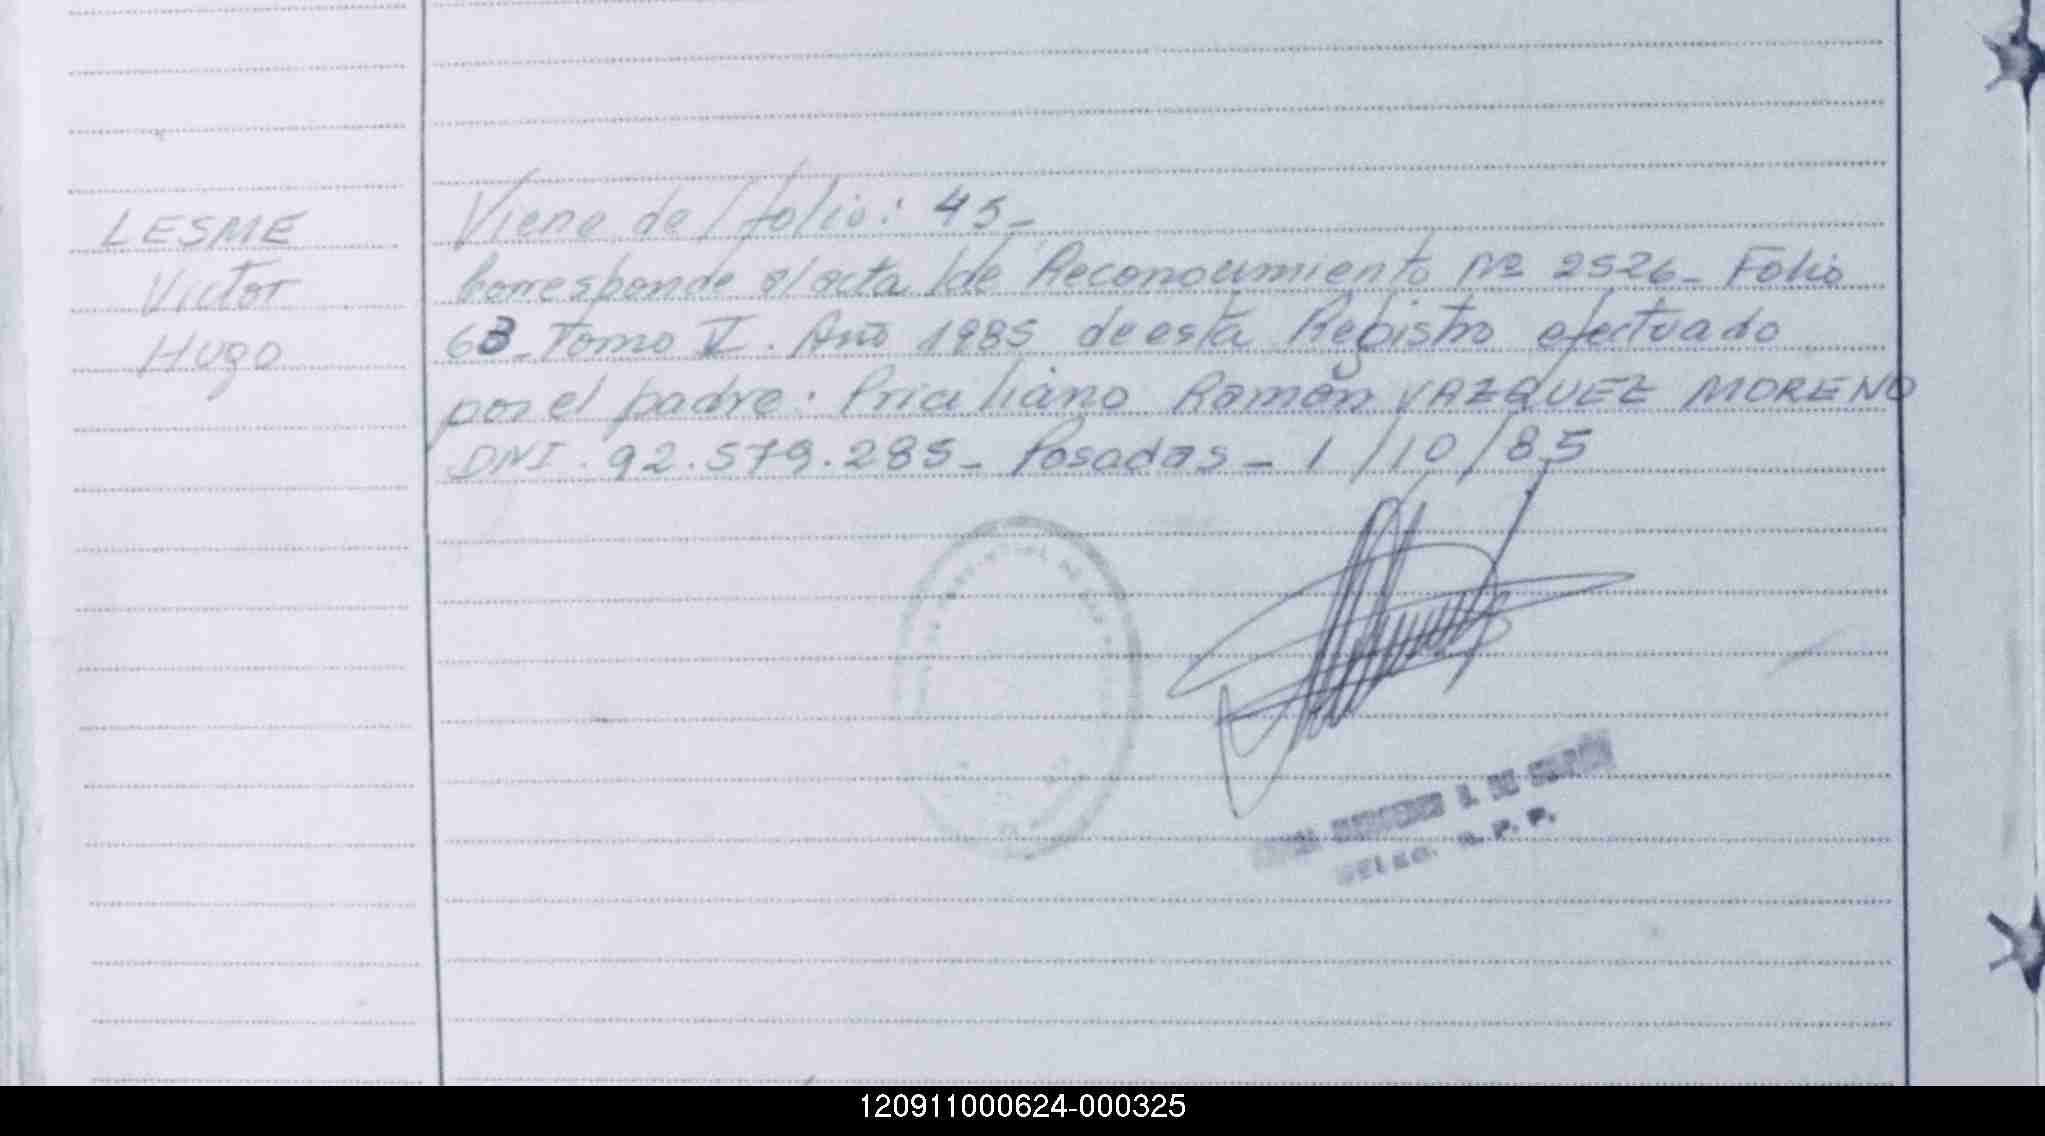 LESME
Victor
Hugo
Viene del folio: 45-
Corresponde al acta de Reconocimiento Nº 2526- Folio
63- Tomo V. Año 1985 de esta Registro efectuado
por el padre: Priciliano Ramón VAZQUEZ MORENO
DNI. 92.579.285- Posadas- 1/10/85
DE
R. P. P.
120911000624-000325